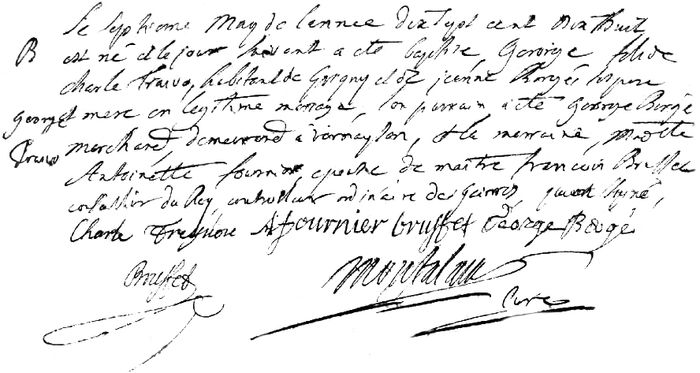 Le septieme May de lennee dix sept cent dix huit
B est né et le jour suivant a été baptisé, George fils de
charle Travo, habitant de Grigny et de jeanne Borgés ses pere
George et mere en legitime mariage, son parrain a été George Borgé
Travo marchand demeurand à vernayson, et la marraine, madlle
Antoinette fournier epouse de maitre francois Bruffet
du Roy controlleur ordinaire des guerres, qui ont signé,
Charle A fournier bruffet George Borgé
Bruffet Montalan
Curé